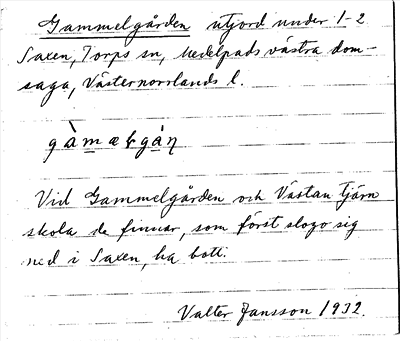 Gammelgården utjord under 1-2
Saxen, Torps sn, Medelpads västra dom-
saga, Västernorrlands l.
gàmæɫgáṇ
Vid Gammelgården och Västan tjärn
skola de finnar, som först slogo sig
ned i Saxen, ha bott.
Valter Jansson 1932.